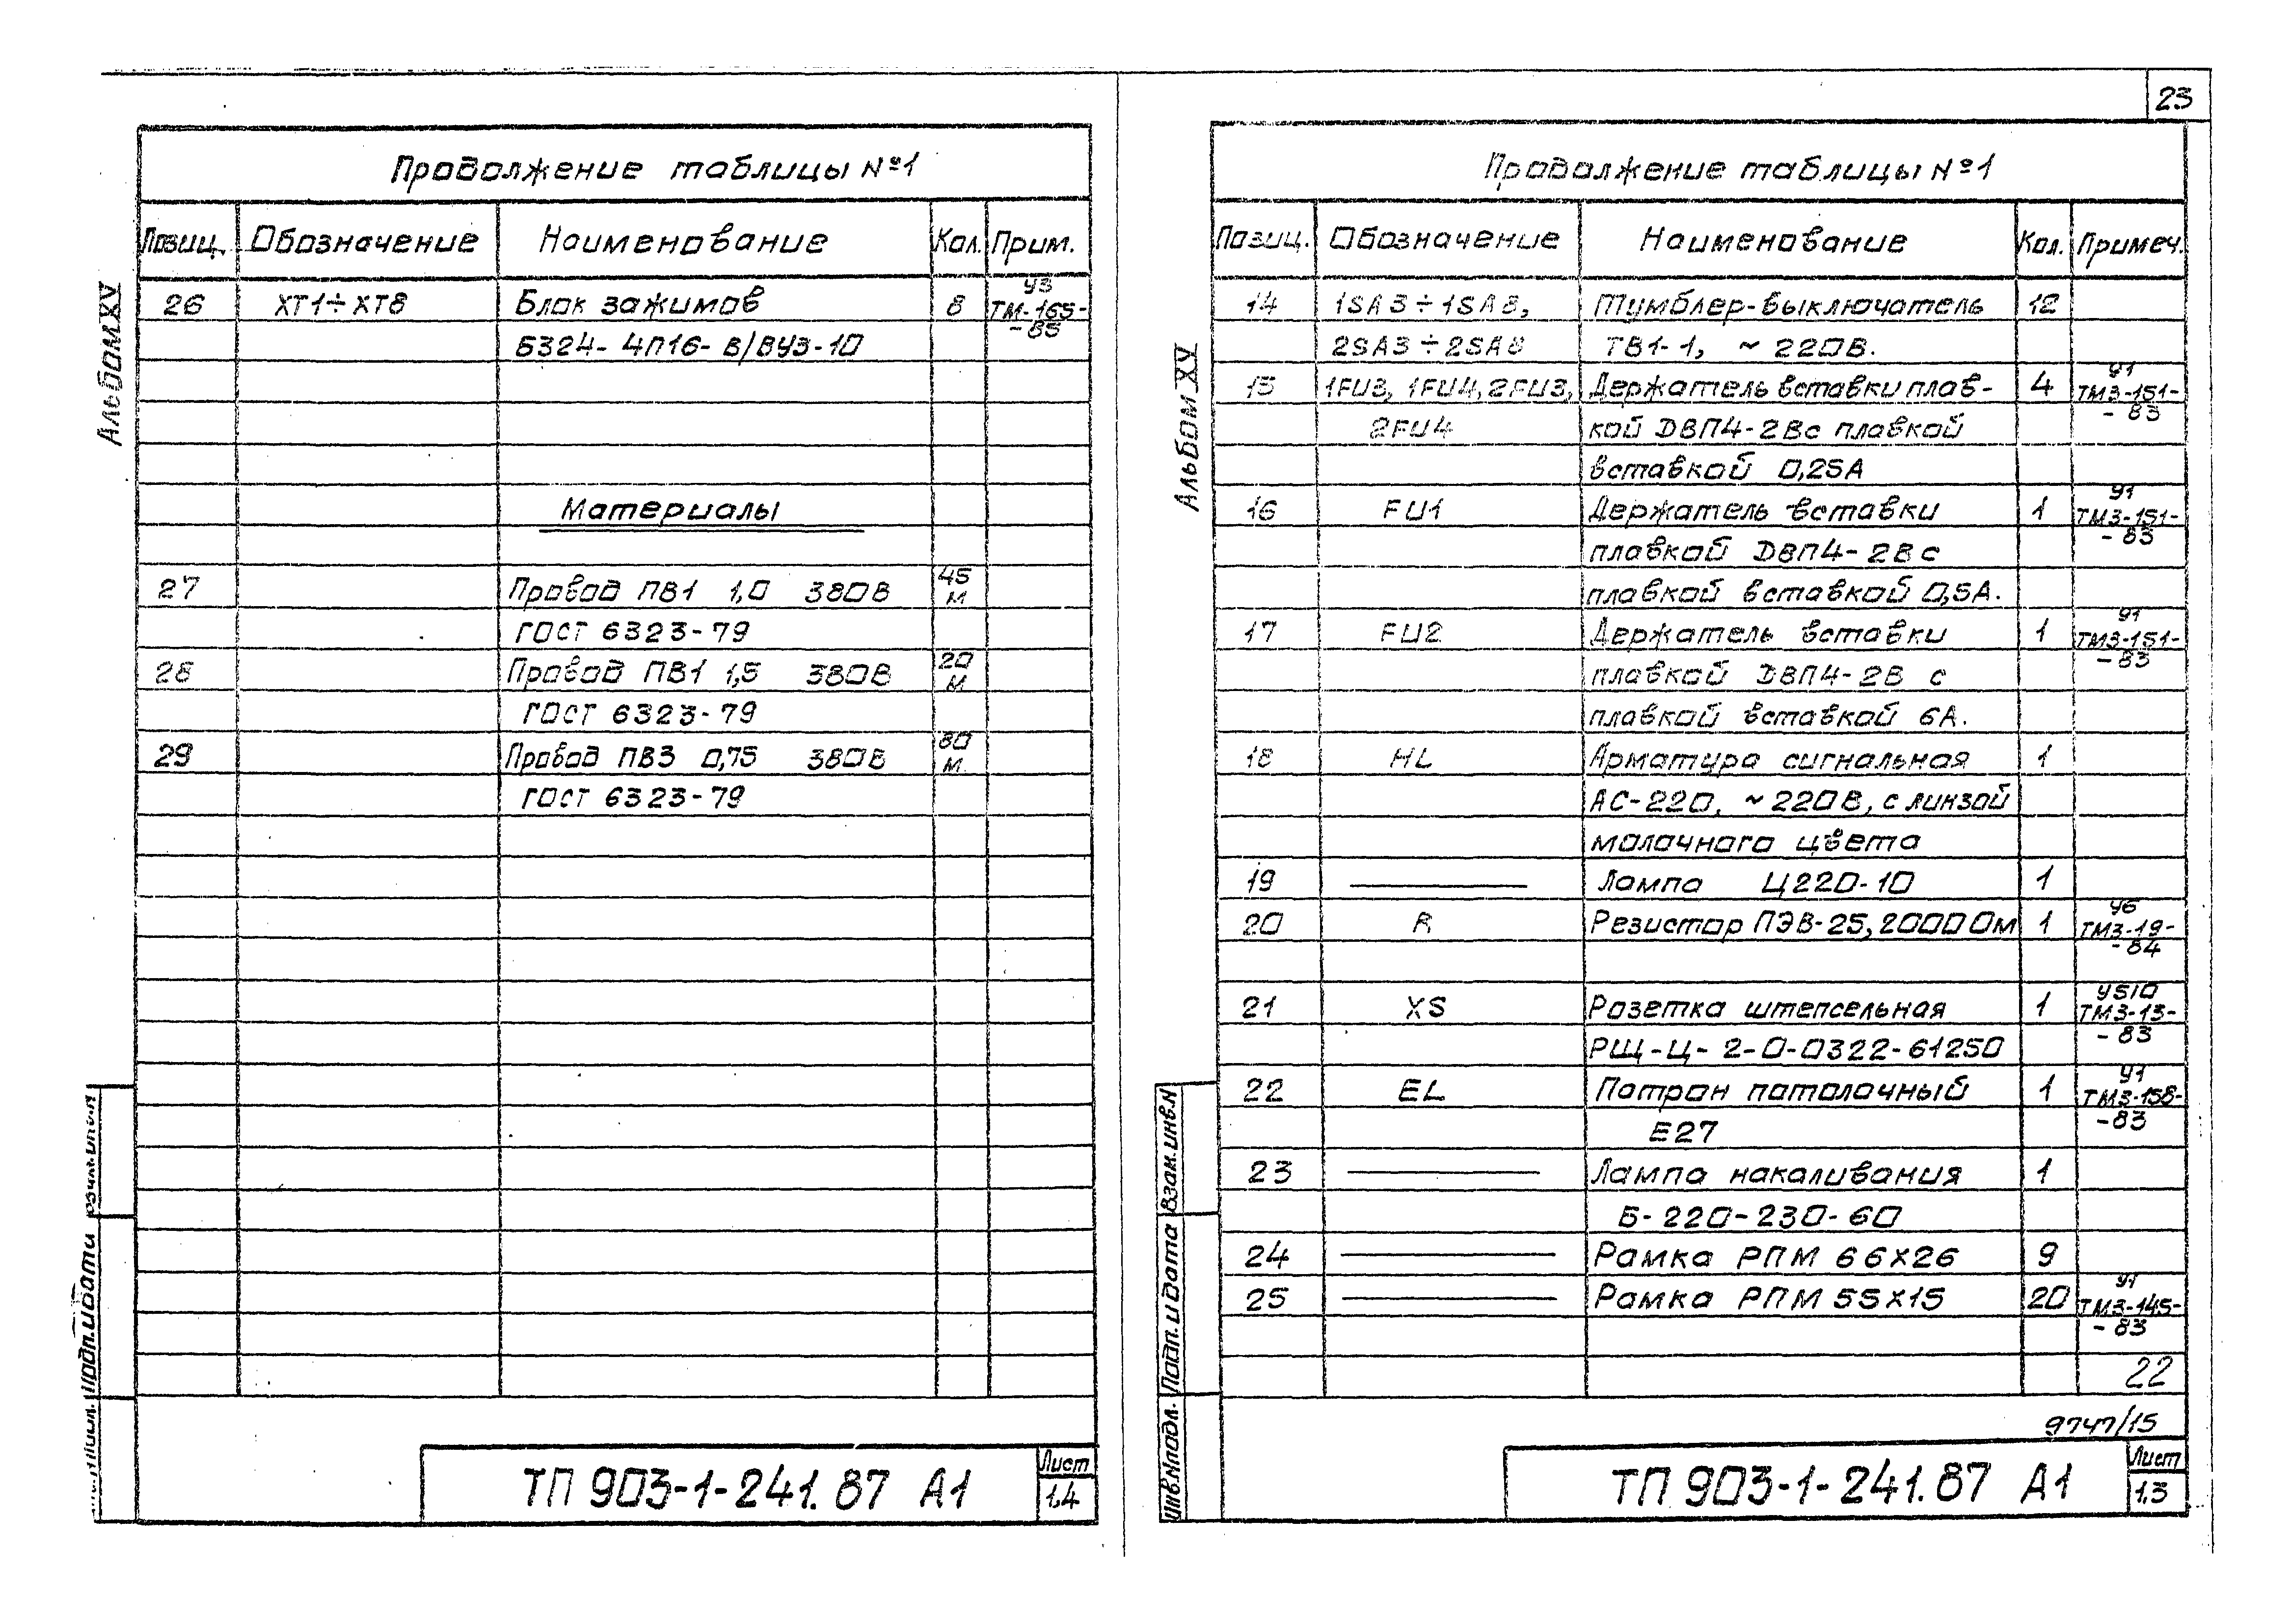 Продолжение таблицы №1
Позиц. Обозначение Наименование Кол. Прим.
26 XT1÷XT8 Блок зажимов 8 У3 ТМ-165-
Б324-4П16-В/ВУ3-10 -85
Материалы
27 Провод ПВ1 1,0 380В 45 м
ГОСТ 6323-79
28 Провод ПВ1 1,5 380В 20 м
ГОСТ 6323-79
29 Провод ПВ3 0,75 380В 80 м.
ГОСТ 6323-79
Альбом XV
Подп. и дата
ТП 903-1-241.87 А1
Лист
1.4
23
Продолжение таблицы №1
Позиц. Обозначение Наименование Кол. Примеч.
14 1SA3÷1SA8, Тумблер-выключатель 12
2SA3÷2SA8 ТВ1-1, ~220В.
15 1FU3, 1FU4, 2FU3, Держатель вставки плав- 4 У1 ТМ3-151-
2FU4 кой ДВП4-2Вс плавкой -83
вставкой 0,25А
16 FU1 Держатель вставки 1 У1 ТМ3-151-
плавкой ДВП4-2В с -83
плавкой вставкой 0,5А.
17 FU2 Держатель вставки 1 У1 ТМ3-151-
плавкой ДВП4-2В с -83
плавкой вставкой 6А.
18 HL Арматура сигнальная 1
АС-220, ~220В, с линзой
молочного цвета
19 Лампа Ц220-10 1
20 R Резистор ПЭВ-25, 2000 Ом 1 У6 ТМ3-19-
-84
21 XS Розетка штепсельная 1 У510 ТМ3-13-
РЩ-Ц-2-0-0322-61250 -83
22 EL Патрон потолочный 1 У1 ТМ3-158-
Е27 -83
23 Лампа накаливания 1
Б-220-230-60
24 Рамка РПМ 66х26 9
25 Рамка РПМ 55х15 20 У1 ТМ3-145-
-83
22
9747/15
Альбом XV
Взам.инв.N
Подп. и дата
Инв.Nподл.
ТП 903-1-241.87 А1
Лист
1.3